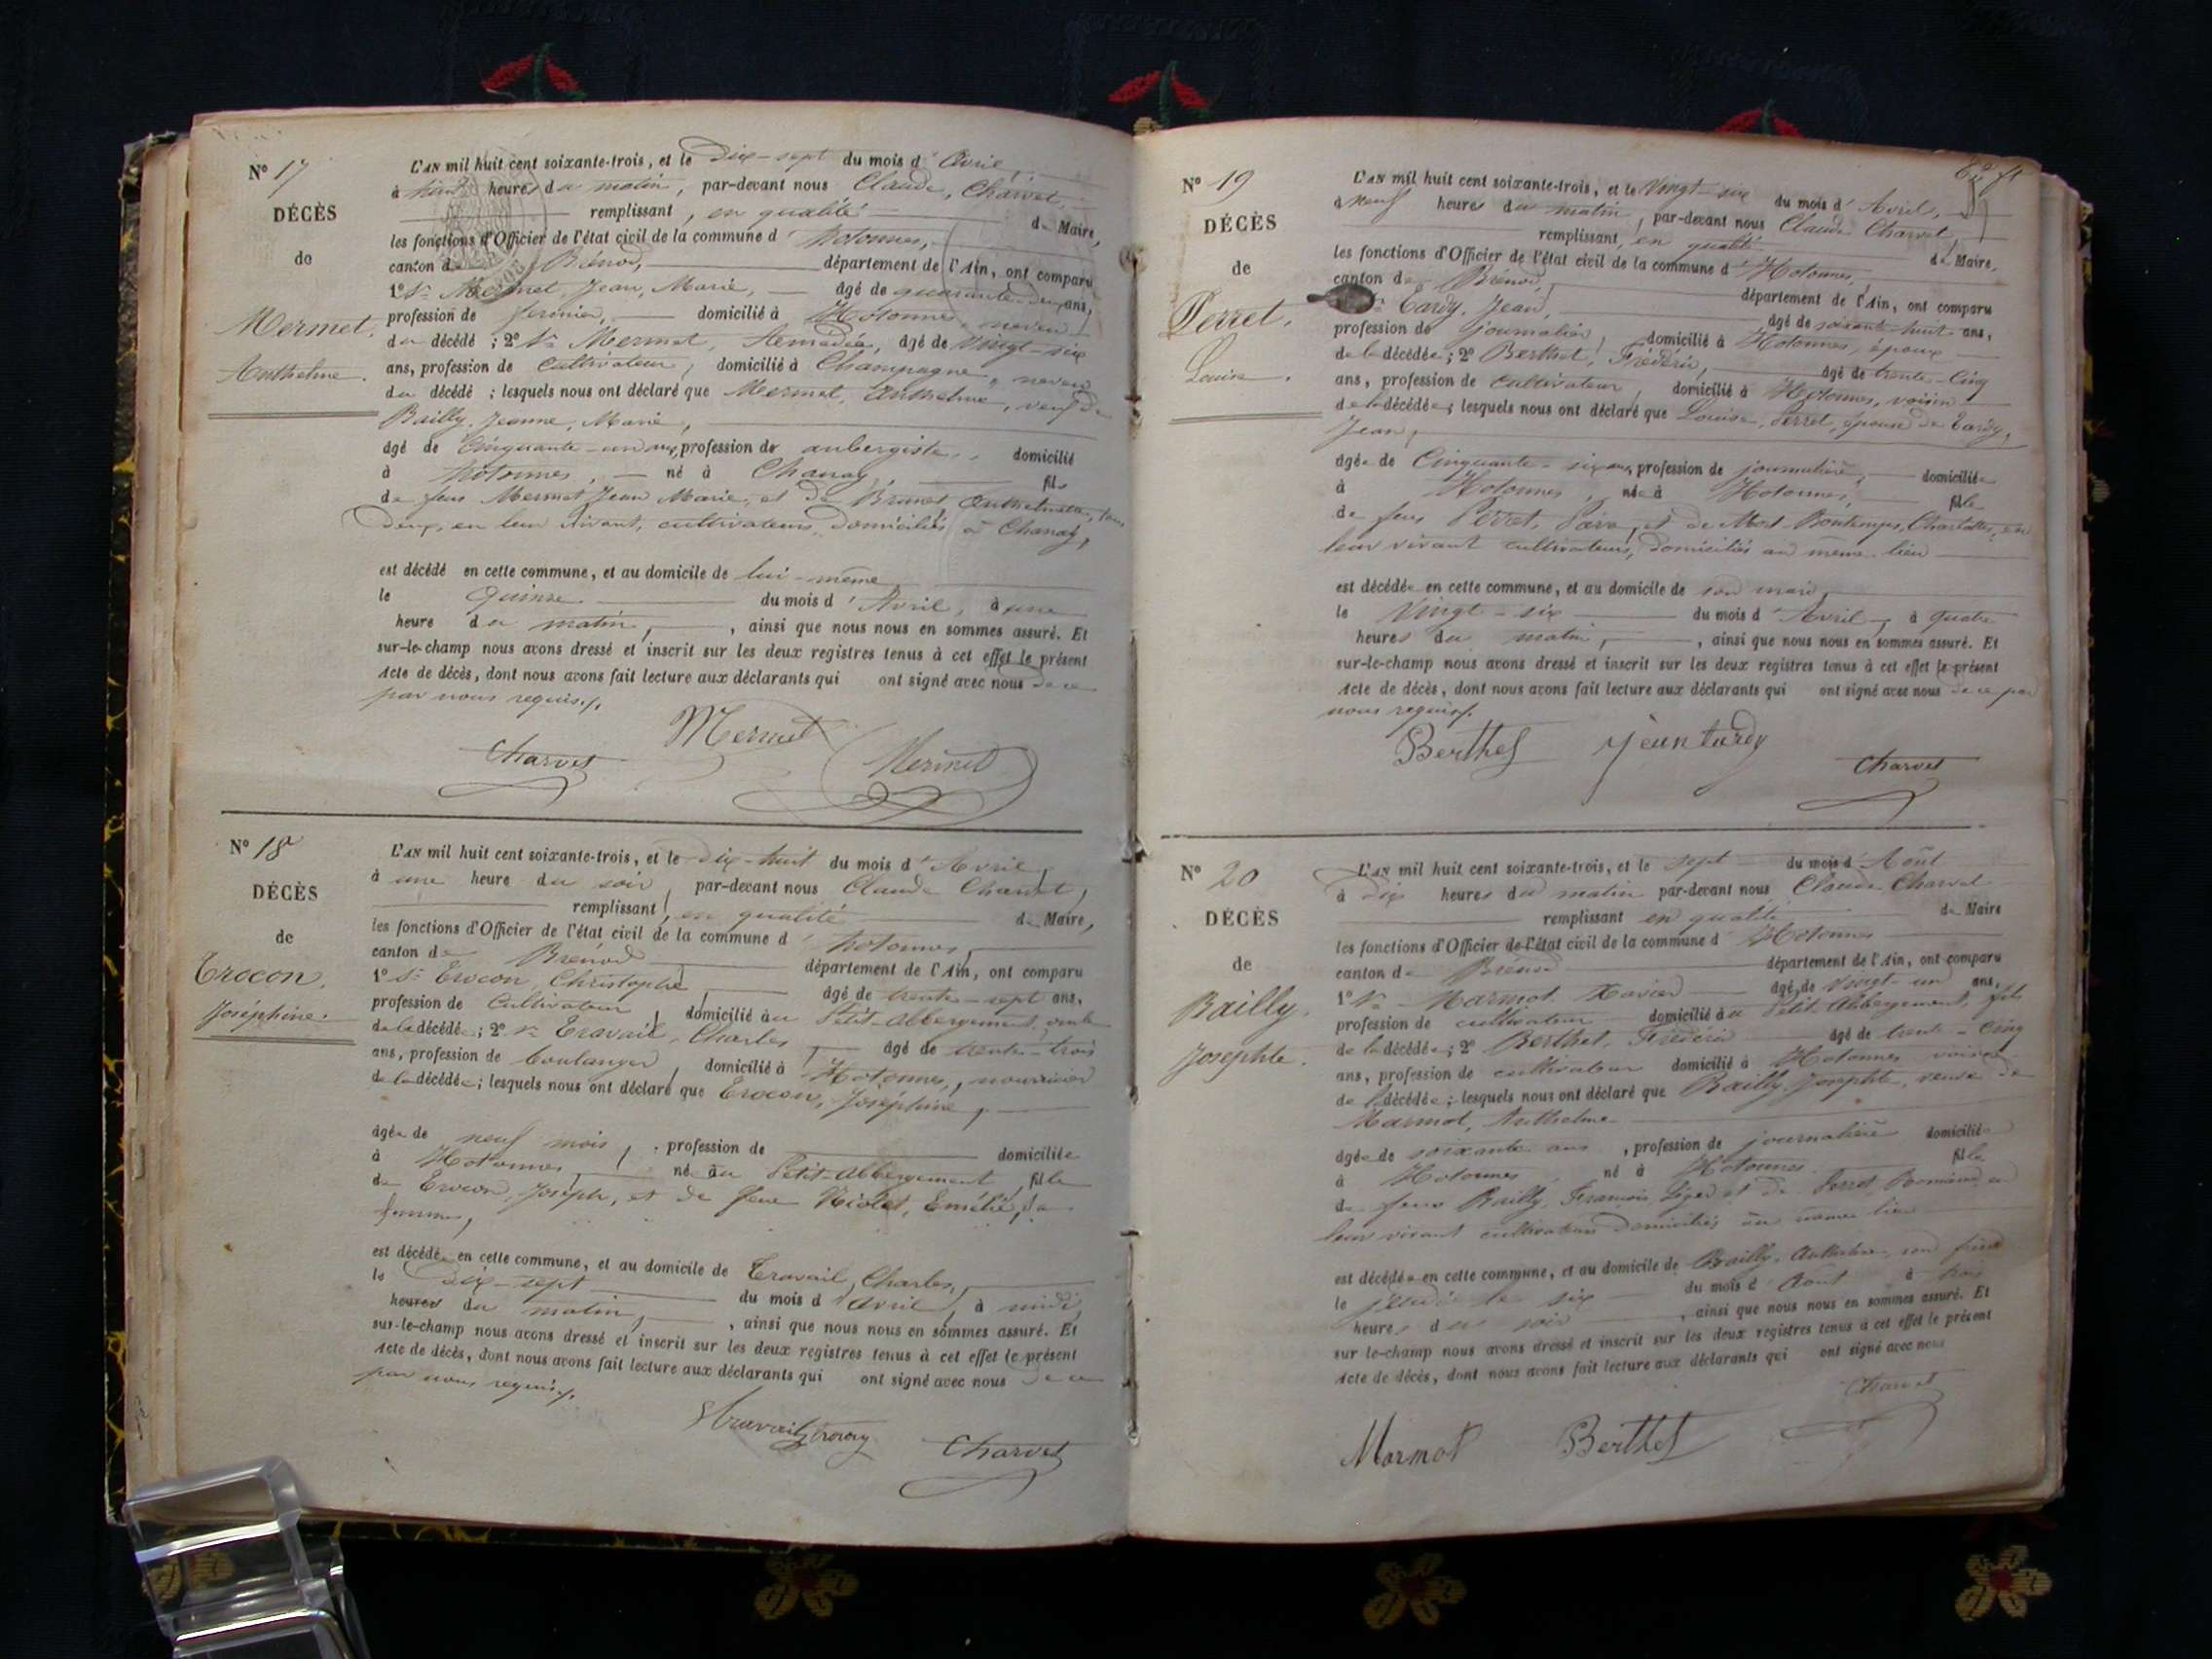 N° 17
DÉCÈS
de
Mermet.
Anthelme.
L'AN mil huit cent soixante-trois, et le Dix-sept du mois d' Avril,
à huit heures du matin, par-devant nous Claude, Charvet,
remplissant, en qualité de Maire,
les fonctions d'Officier de l'état civil de la commune d' Hotonnes,
canton de Brénod, département de l'Ain, ont comparu
1° Sr Mermet, Jean, Marie, âgé de quarante-deux ans,
profession de domicilié à Hotonnes, neveu
du décédé ; 2° Sr Mermet, âgé de Vingt-six
ans, profession de Cultivateur, domicilié à Champagne, neveu
du décédé ; lesquels nous ont déclaré que Mermet, Anthelme, veuf de
Bailly, Jeanne, Marie,
âgé de Cinquante-un ans, profession de aubergiste, domicilié
à Hotonnes, né à Chanay, fils
de feus Mermet Jean Marie, et de Brunet, Anthelmette, tous
deux, en leur vivant, cultivateurs, domiciliés à Chanay,
est décédé en cette commune, et au domicile de lui-même
le Quinze du mois d' Avril, à une
heure du matin, , ainsi que nous nous en sommes assuré. Et
sur-le-champ nous avons dressé et inscrit sur les deux registres tenus à cet effet le présent
Acte de décès, dont nous avons fait lecture aux déclarants qui ont signé avec nous de ce
par nous requis.
Mermet
Charvet Mermet
N° 18
DÉCÈS
de
Trocon.
Joséphine.
L'AN mil huit cent soixante-trois, et le dix-huit du mois d' Avril,
à une heure du soir, par-devant nous Claude Charvet,
remplissant, en qualité de Maire,
les fonctions d'Officier de l'état civil de la commune d' Hotonnes,
canton de Brénod département de l'Ain, ont comparu
1° Sr Trocon, Christophe, âgé de trente-sept ans,
profession de Cultivateur, domicilié au Petit-Abbergement, oncle
de la décédée ; 2° Sr Travail, Charles, âgé de trente-trois
ans, profession de boulanger, domicilié à Hotonnes, nourricier
de la décédée ; lesquels nous ont déclaré que Trocon, Joséphine,
âgée de neuf mois, profession de domiciliée
à Hotonnes, née au Petit-Abbergement, fille
de Trocon, Joseph, et de feue Niolet, Emélie, sa
femme,
est décédée en cette commune, et au domicile de Travail, Charles,
le Dix-sept du mois d' Avril, à midi,
heures du matin, , ainsi que nous nous en sommes assuré. Et
sur-le-champ nous avons dressé et inscrit sur les deux registres tenus à cet effet le présent
Acte de décès, dont nous avons fait lecture aux déclarants qui ont signé avec nous de ce
par nous requis.
Charvet
N° 19
DÉCÈS
de
Perret.
Louise.
L'AN mil huit cent soixante-trois, et le Vingt-six du mois d' Avril,
à neuf heures du matin, par-devant nous Claude Charvet,
remplissant, en qualité de Maire,
les fonctions d'Officier de l'état civil de la commune d' Hotonnes,
canton de Brénod, département de l'Ain, ont comparu
Tardy, Jean, âgé de soixante huit ans,
profession de journalier, domicilié à Hotonnes, époux
de la décédée ; 2° Berthet, Frédéric, âgé de trente-Cinq
ans, profession de cultivateur, domicilié à Hotonnes, voisin
de la décédée ; lesquels nous ont déclaré que Louise, Perret, épouse de Tardy,
Jean,
âgée de Cinquante-six ans, profession de journalière, domiciliée
à Hotonnes, née à Hotonnes, fille
de feus Perret, et de
leur vivant cultivateurs, domiciliés au même lieu
est décédée en cette commune, et au domicile de son mari,
le Vingt-six du mois d' Avril, à quatre
heures du matin, , ainsi que nous nous en sommes assuré. Et
sur-le-champ nous avons dressé et inscrit sur les deux registres tenus à cet effet le présent
Acte de décès, dont nous avons fait lecture aux déclarants qui ont signé avec nous de ce par
nous requis.
Berthet jean tardy
Charvet
N° 20
DÉCÈS
de
Bailly.
Josephte.
L'AN mil huit cent soixante-trois, et le sept du mois d' Août
à dix heures du matin par-devant nous Claude Charvet
remplissant en qualité de Maire
les fonctions d'Officier de l'état civil de la commune d' Hotonnes
canton de Brénod département de l'Ain, ont comparu
1° Sr Marmot, Xavier âgé de Vingt-un ans,
profession de cultivateur domicilié au Petit Abbergement, fils
de la décédée ; 2° Berthet, Frédéric âgé de trente-cinq
ans, profession de cultivateur domicilié à Hotonnes voisin
de la décédée ; lesquels nous ont déclaré que Bailly, Josephte, veuve de
Marmot, Anthelme
âgée de soixante ans, profession de journalière domiciliée
à Hotonnes, né à Hotonnes. fille
de feus Bailly, François Léger et de Perret, en
leur vivant cultivateurs domiciliés au même lieu
est décédée en cette commune, et au domicile de Bailly, Anthelme son frère
le jeudi le six du mois d' Août à trois
heures du soir , ainsi que nous nous en sommes assuré. Et
sur le-champ nous avons dressé et inscrit sur les deux registres tenus à cet effet le présent
Acte de décès, dont nous avons fait lecture aux déclarants qui ont signé avec nous
Charvet
Marmot Berthet